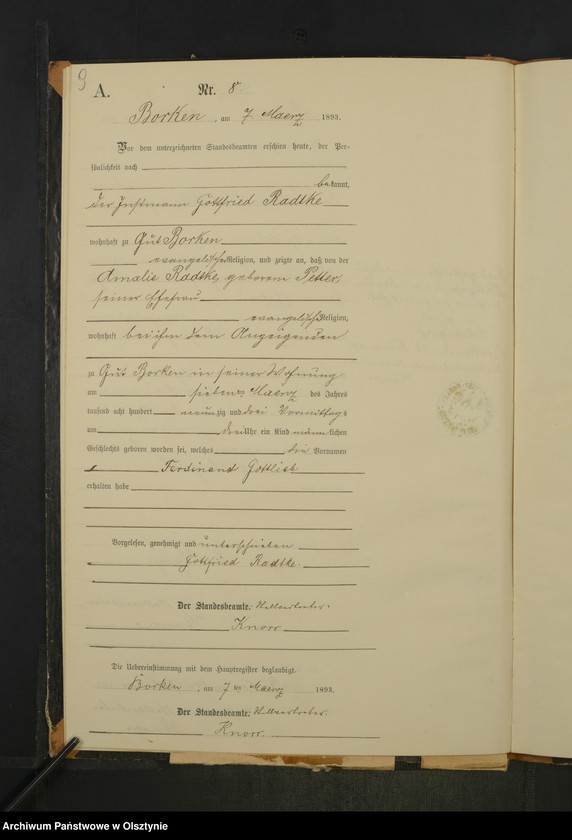 9
A.
Nr. 8
Borken, am 7 Maerz 1893.
Vor dem unterzeichneten Standesbeamten erschien heute, der Per-
sönlichkeit nach
bekannt,
der Instmann Gottfried Radtke
wohnhaft zu Gut Borken
evangelischer Religion, und zeigte an, daß von der
Amalie Radtke, geborenen Petter,
seiner Ehefrau
evangelischer Religion,
wohnhaft bei ihm dem Anzeigenden
zu Gut Borken in seiner Wohnung
am siebenten Maerz des Jahres
tausend acht hundert neunzig und drei Vormittags
um drei Uhr ein Kind männlichen
Geschlechts geboren worden sei, welches die Vornamen
Ferdinand Gottlieb
erhalten habe
Vorgelesen, genehmigt und unterschrieben
Gottfried Radtke.
Der Standesbeamte. Stellvertreter.
Knorr
Die Uebereinstimmung mit dem Hauptregister beglaubigt.
Borken, am 7 ten Maerz 1893.
Der Standesbeamte. Stellvertreter.
Knorr.
Archiwum Państwowe w Olsztynie